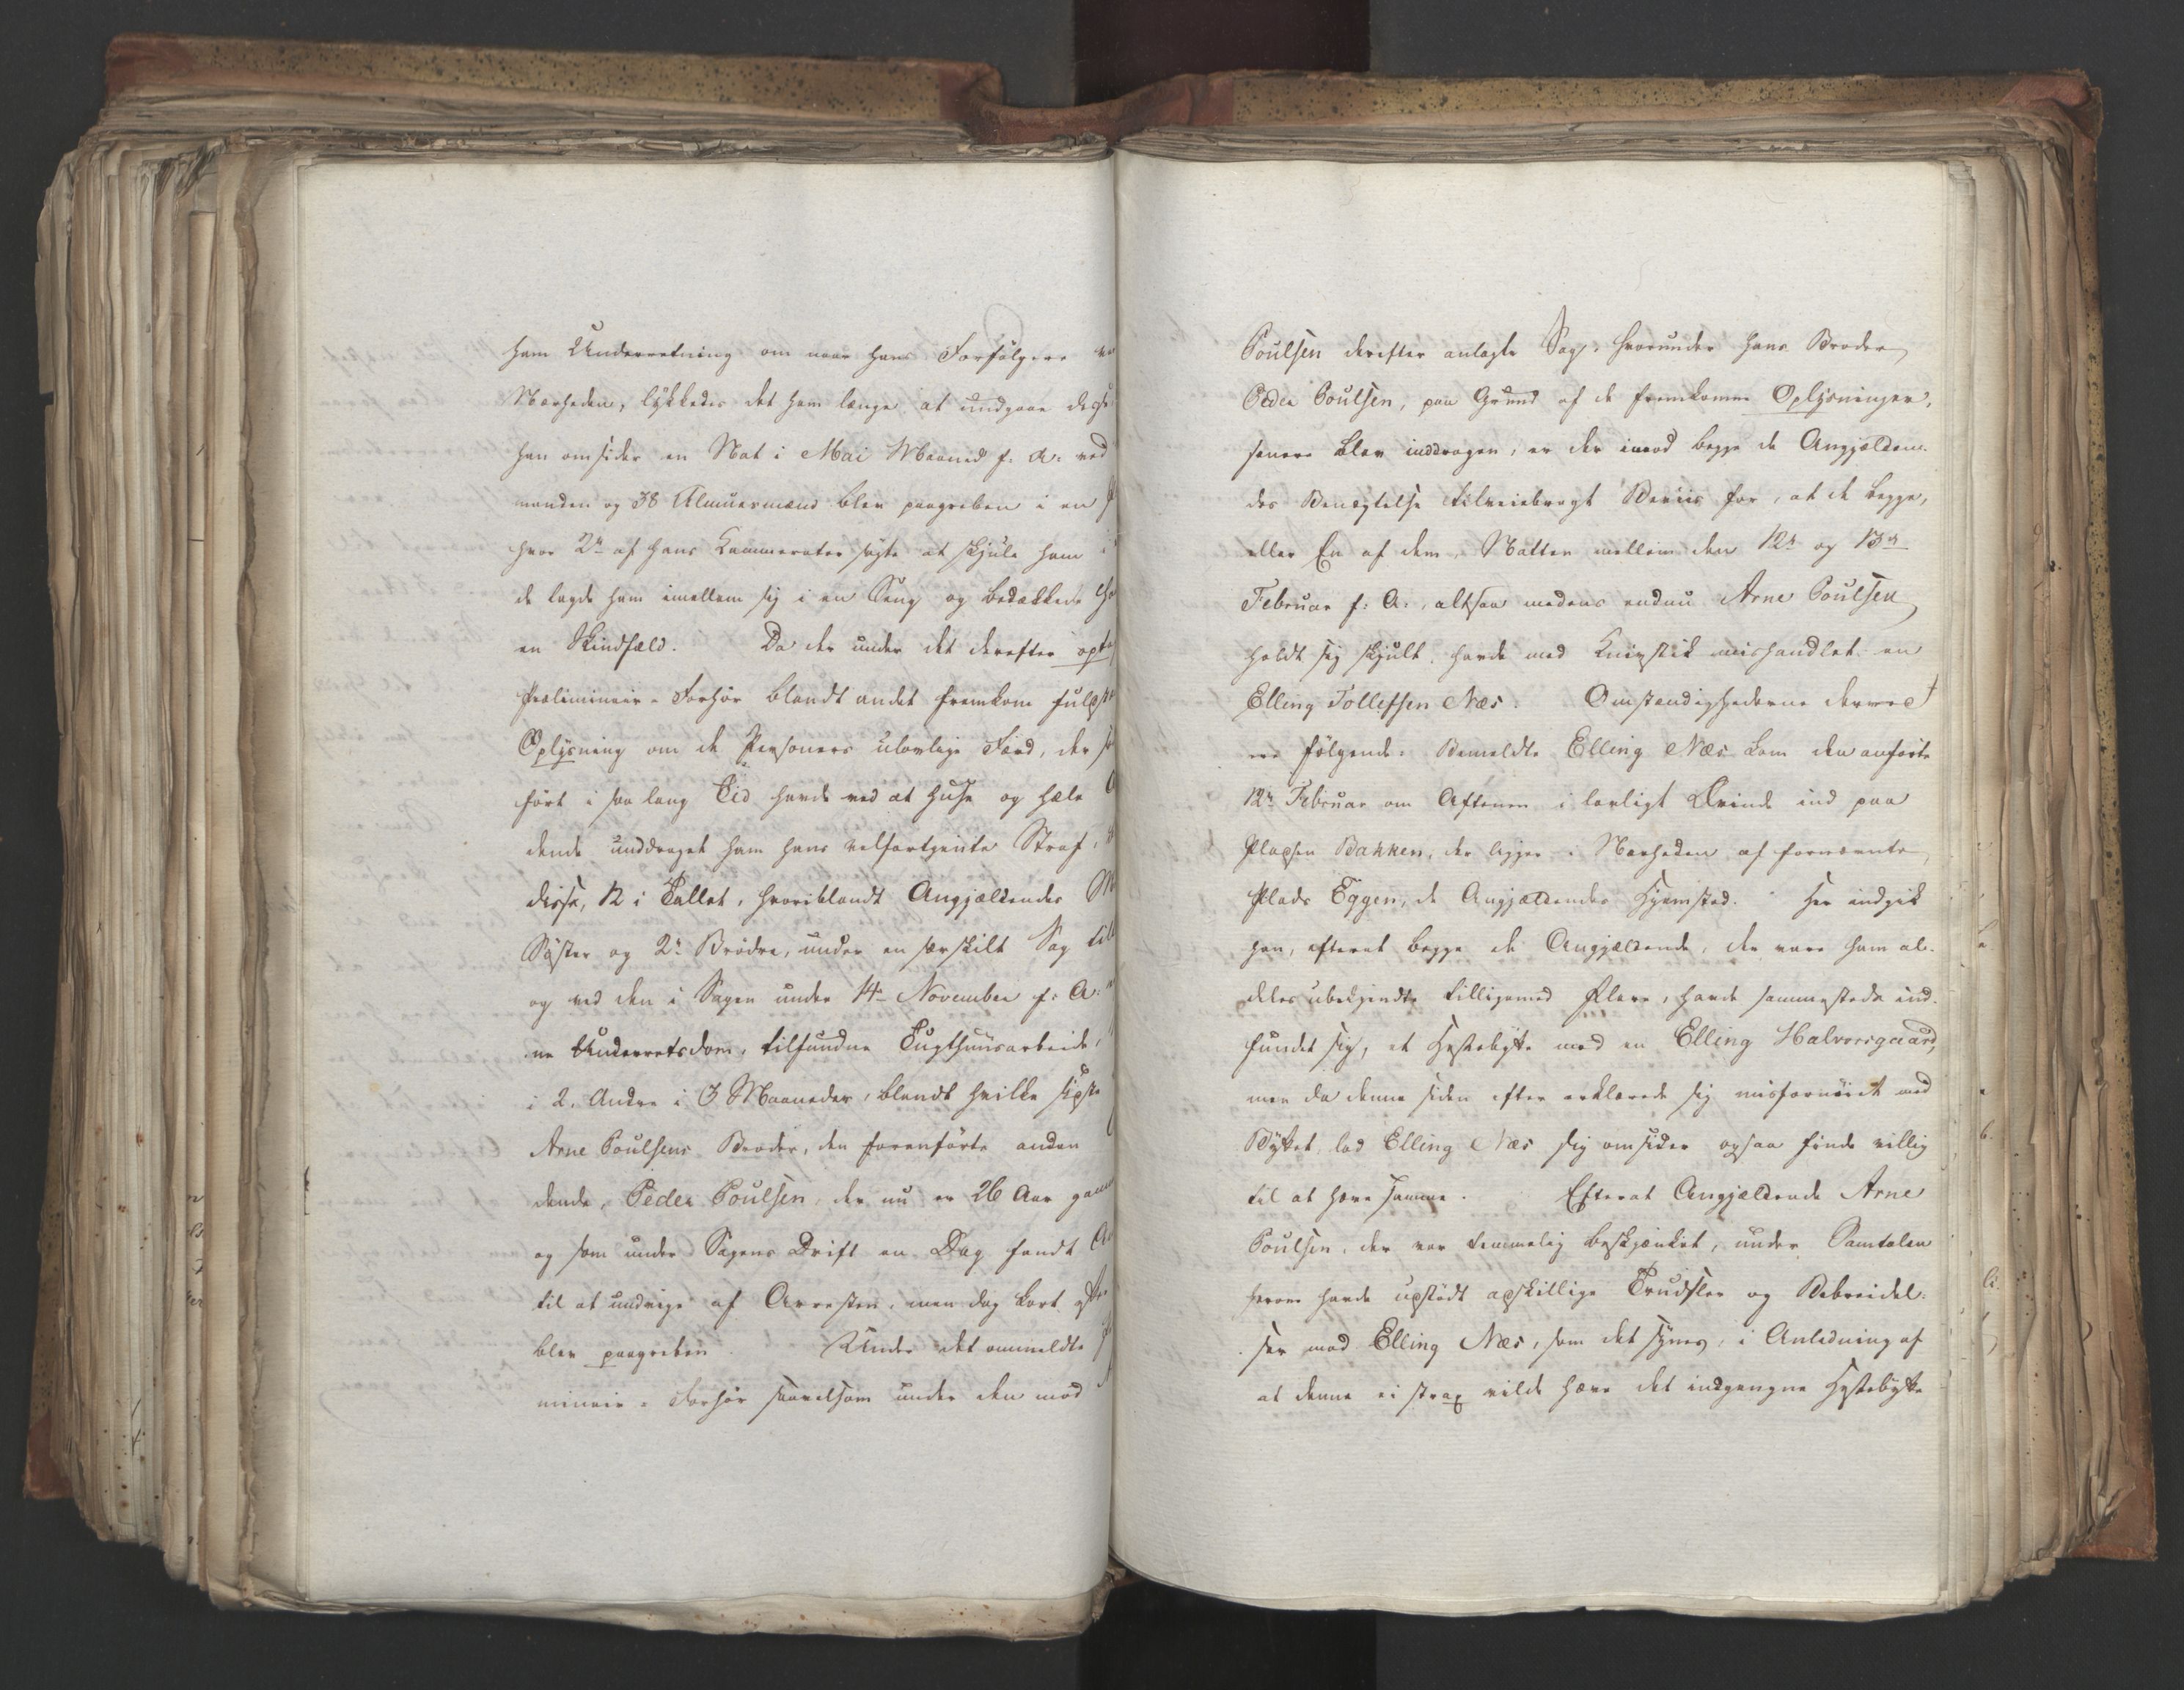 ham Underretning om naar hans Forfølgere
Nærheden, lykkedes det ham længe at undgaae disse
han omsider en Nat i Mai Maaned f: A: ved
manden og 38 Almuesmænd blev paagreben i en
hvor 2de af hans Kammerater søgte at skjule ham i
de lagde ham imellem sig i en Seng og bedækkede
en Skindfæld. Da der under det derefter opta
Præliminair-Forhør blandt andet fremkom fulgst
Oplysning om de Personers ulovlige Færd, der
ført i saa lang Tid havde ved at huse og hæle
dende unddraget ham hans velfortjente Straf,
disse, 12 i Tallet, hvoriblandt Angjældendes
Søster og 2de Brødre, under en særskilt Sag till
og ved den i Sagen under 14de November f: A:
ne Underretsdom, tilfundne Tugthuusarbeide,
i 2. Andre i 3 Maaneder, blandt hvilke sidste
Arne Poulsens Broder, den foranførte anden
dende, Peder Poulsen, der nu er 26 Aar gam
og som under Sagens Drift en Dag fandt
til at undvige af Arresten, men dog kort efter
blev paagreben. Under det ommeldte
minair-Forhør saavelsom under den mod
Poulsen derefter anlagte Sag, hvorunder hans Broder
Peder Poulsen, paa Grund af de fremkomne Oplysninger,
senere blev inddragen, er der imod begge de Angjælden-
des Benægtelse tilveiebragt Beviis for, at de begge,
eller En af dem, Natten mellem den 12te og 13de
Februar f: A:, altsaa medens endnu Arne Poulsen
holdt sig skjult, havde med Knivstik mishandlet en
Elling Tollefsen Næs. Omstændighederne derved
ere følgende: Bemeldte Elling Næs kom den anførte
12te Februar om Aftenen i lovligt Ærinde ind paa
Pladsen Bakken, der ligger i Nærheden af fornævnte
Plads Eggen, de Angjældendes Hjemsted. Her indgik
han, efterat begge de Angjældende, der vare ham al-
deles ubekjendte tilligemed Flere, havde sammesteds ind-
fundet sig, et Hestebytte med en Elling Halvorsgaard,
men da denne siden efter erklærede sig misfornøiet med
Byttet, lod Elling Næs sig omsider ogsaa finde villig
til at hæve samme. Efterat Angjældende Arne
Poulsen, der var temmelig beskjænket, under Samtalen
herom havde udstødt adskillige Trudsler og Bebreidel-
ser mod Elling Næs, som det synes, i Anledning af
at denne ei strax vilde hæve det indgangne Hestebytte